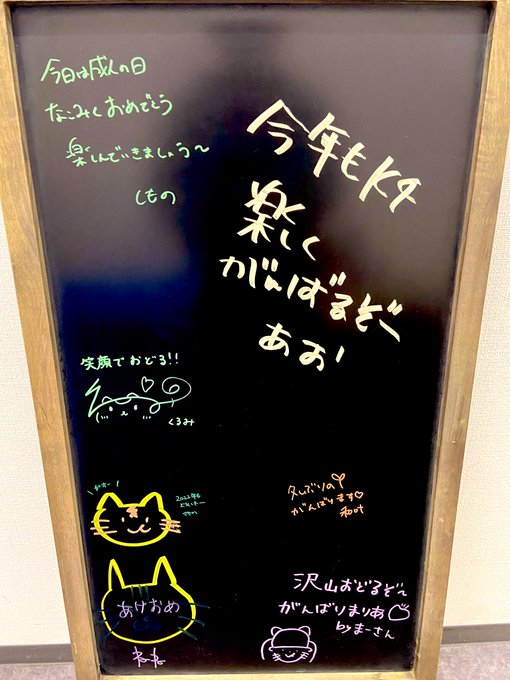 今日は成人の日
なこみくおめでとう
楽しんでいきましょう〜
しもの
今年もK4
楽しく
がんばるぞー
あお!
笑顔でおどる!!
くるみ
ガオー
2022年も
久しぶりの
がんばります♡
和叶
あけおめ
ねーね
沢山おどるぞ〜
がんばりまりあ
byまーさん